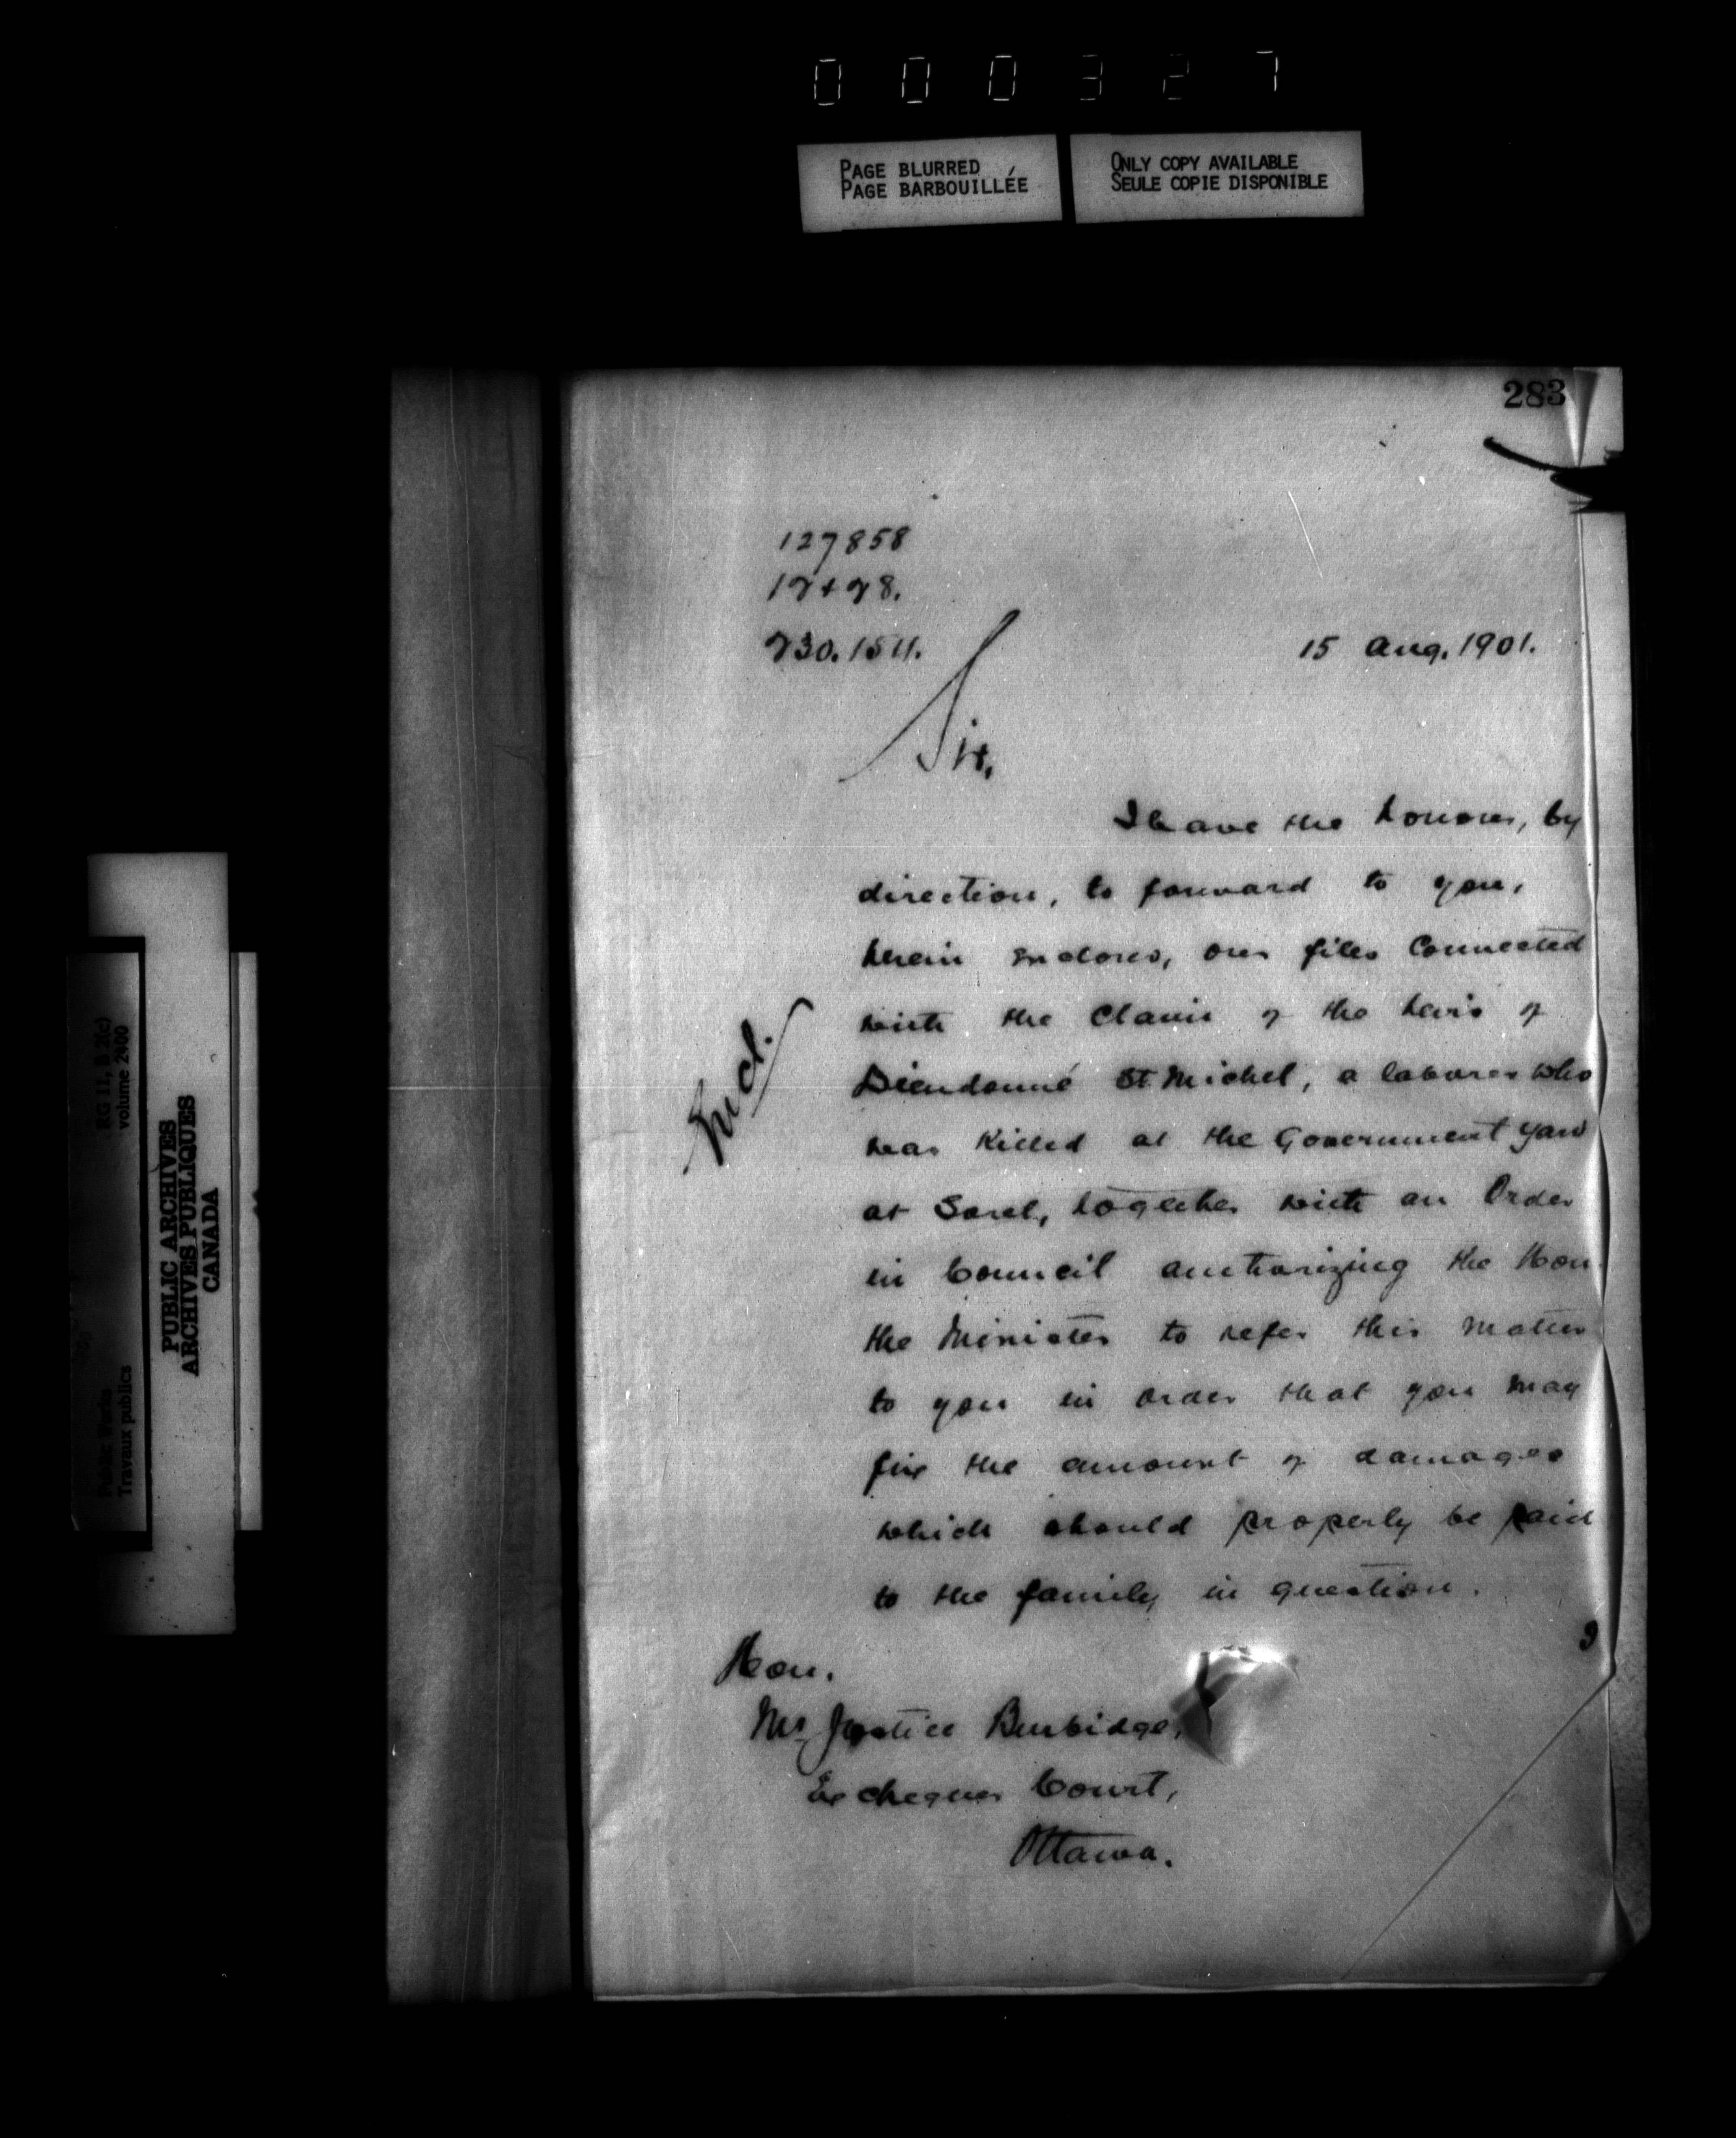 000327
PAGE BLURRED
PAGE BARBOUILLÉE
ONLY COPY AVAILABLE
SEULE COPIE DISPONIBLE
283
127858
15 Aug. 1901.
Sir,
I have the honour, by
direction, to forward to you,
herein enclosed, our files connected
with the claim of the heirs of
Dieudonné St. Michel, a labourer who
was killed at the Government yard
at Sorel, together with an Order
in Council authorizing the Hon.
the Minister to refer this matter
to you in order that you may
fix the amount of damages
which should properly be paid
to the family in question.
Incl.
Hon.
Mr Justice Burbidge,
Exchequer Court,
Ottawa.
RG 11, B 2(c)
volume 2400
PUBLIC ARCHIVES
ARCHIVES PUBLIQUES
CANADA
Public Works
Travaux publics